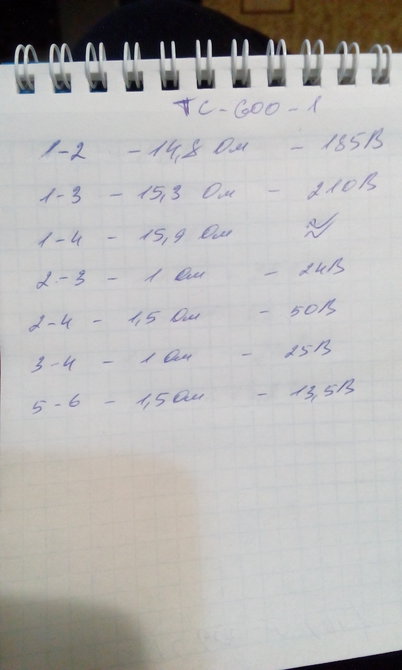 ТС-600-1
1-2 - 14,8 Ом - 185В
1-3 - 15,3 Ом - 210В
1-4 - 15,9 Ом ≈
2-3 - 1 Ом - 24В
2-4 - 1,5 Ом - 50В
3-4 - 1 Ом - 25В
5-6 - 1,5 Ом - 13,5В